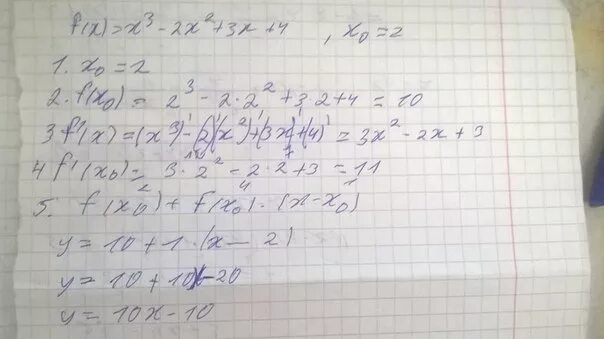 f(x)=x³-2x²+3x+4 , x₀=2
1. x₀=2
2. f(x₀)= 2³-2·2²+3·2+4=10
3 f'(x)=(x³)'-(2)'(x²)'+(3x)'+(4)'=3x²-2x+3
4 f'(x₀)= 3·2²-2·2+3=11
5. f(x₀)+f(x₀)·(x-x₀)
y=10+1·(x-2)
y=10+10x-20
y=10x-10